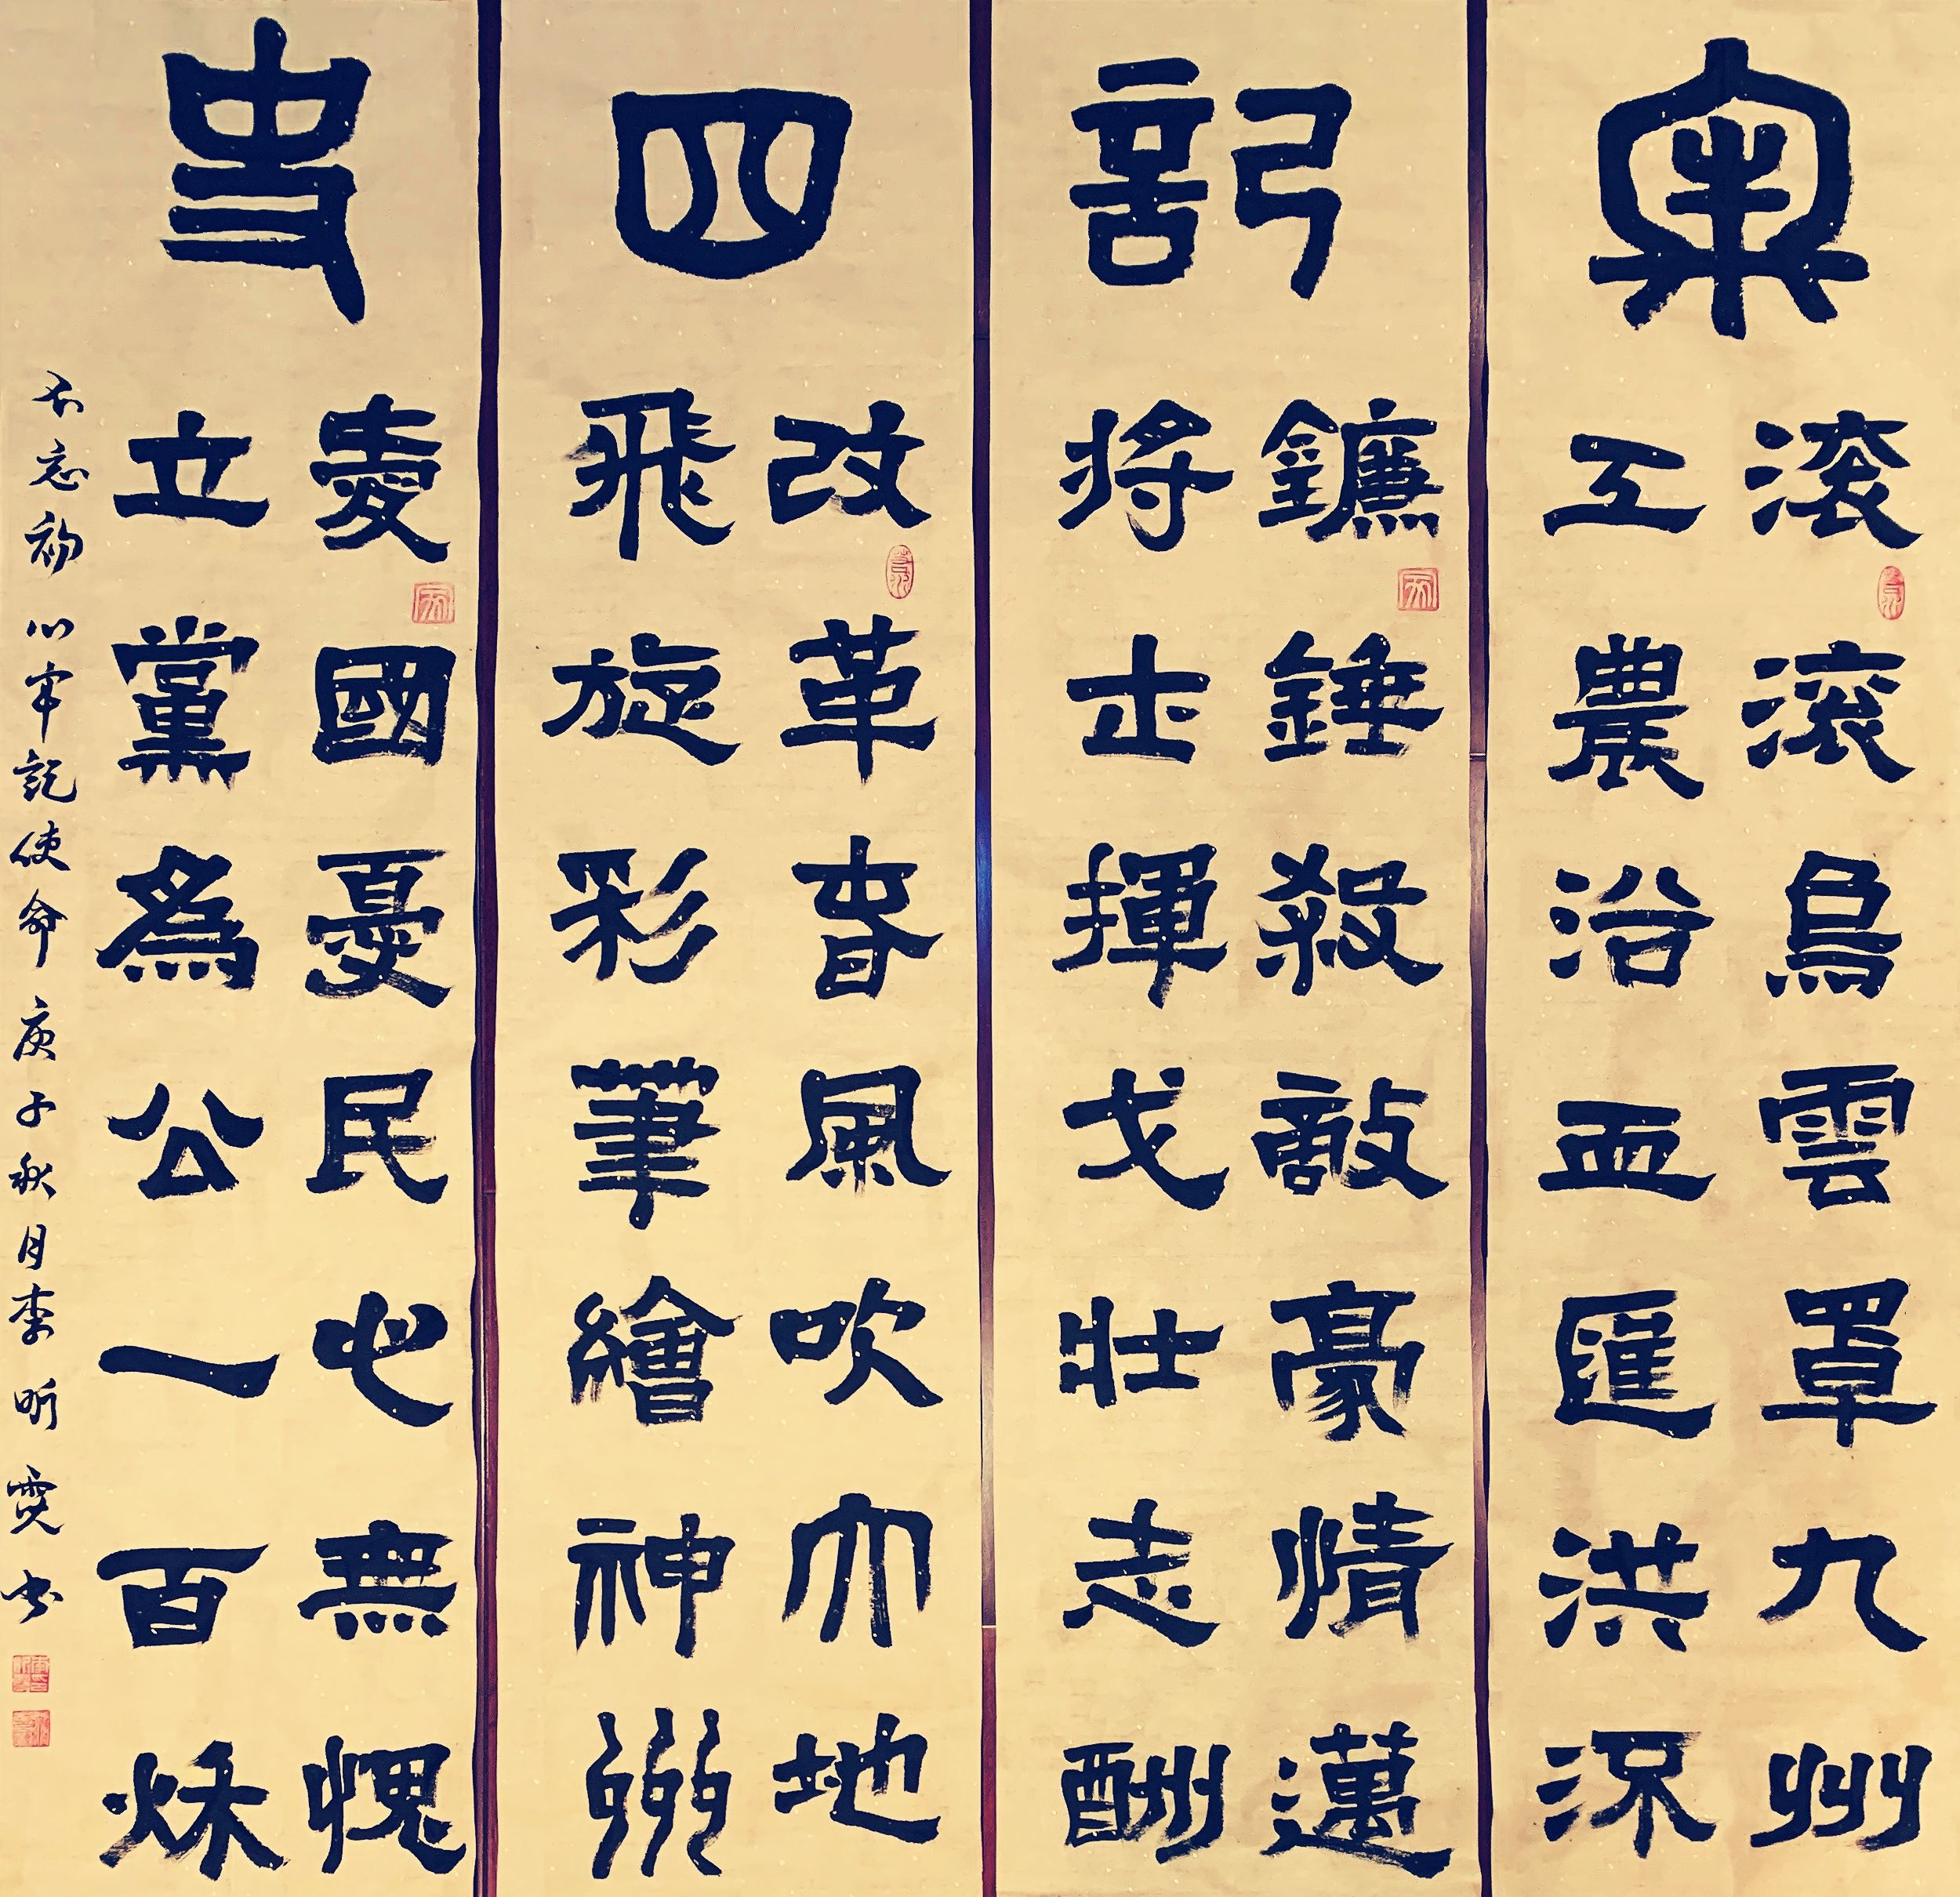 寅
滾滾烏雲罩九州
工農浴血匯洪流
記
鐮錘殺敵豪情邁
將士揮戈壯志酬
四
改革春風吹大地
飛旋彩筆繪神州
史
愛國憂民心無愧
立黨為公一百秋
不忘初心牢記使命 庚子秋月李昕霙书